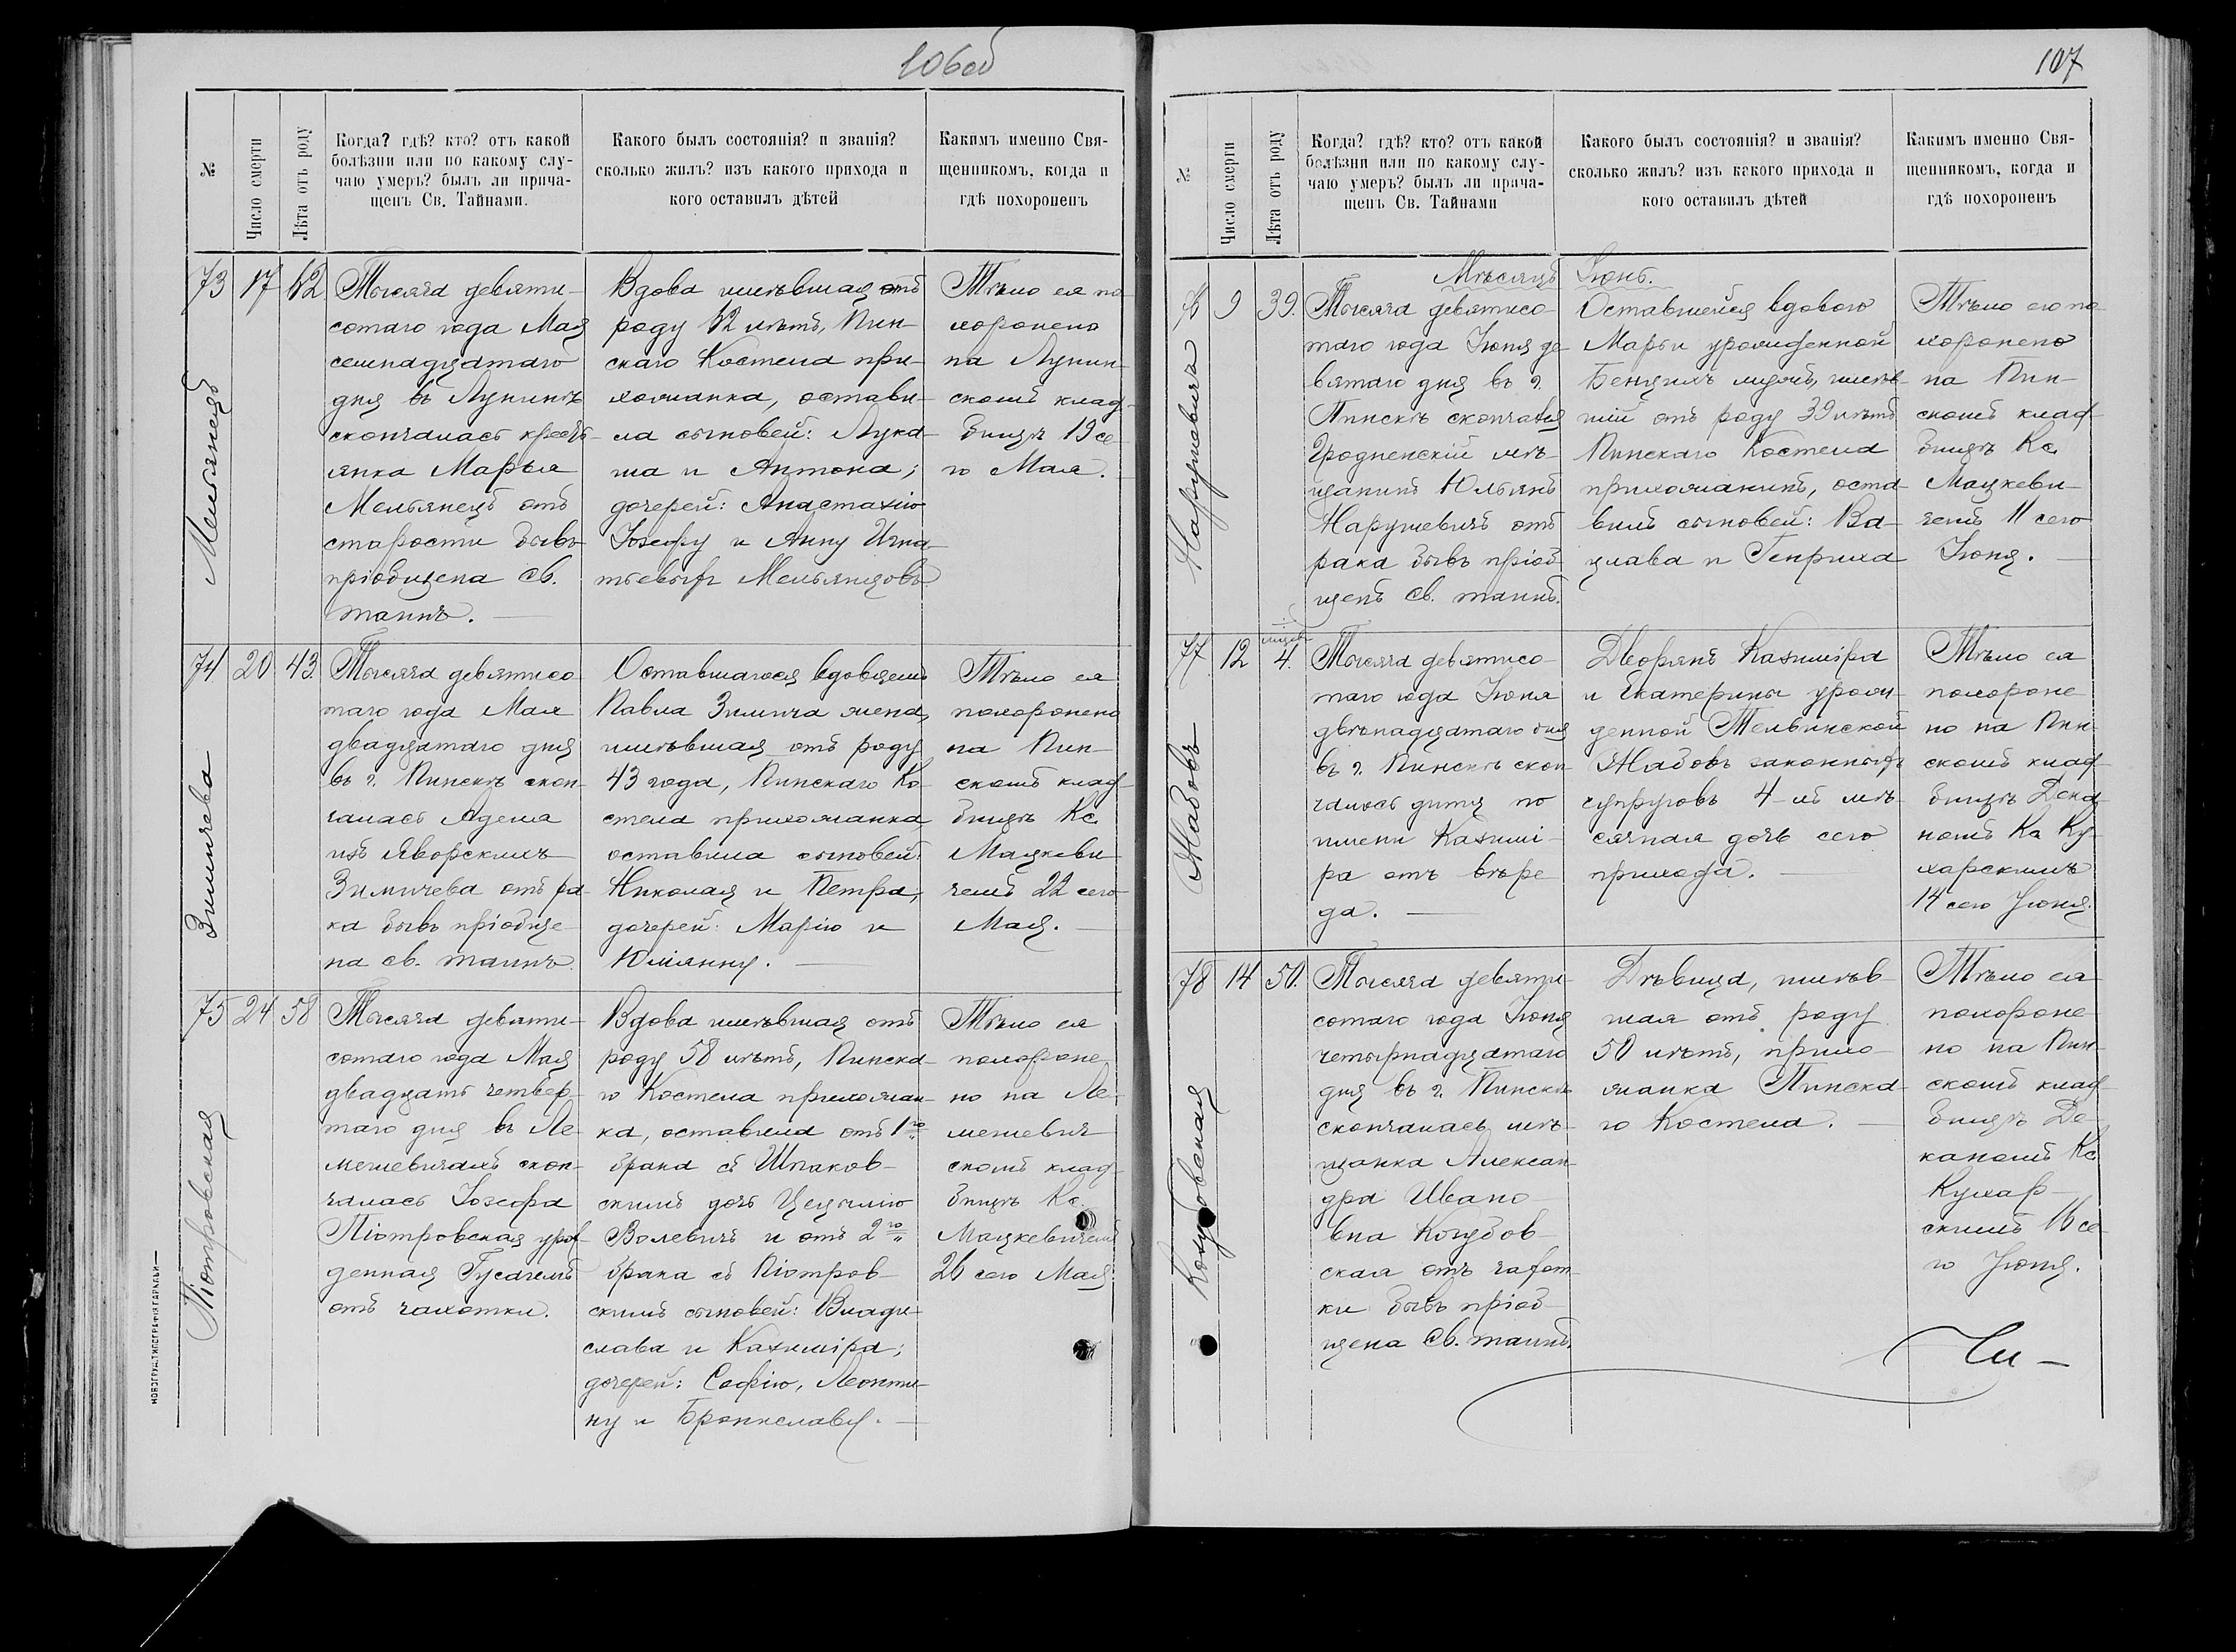 106об
№
Число смерти
Лѣта отъ роду
Когда? гдѣ? кто? отъ какой
болѣзни или по какому слу-
чаю умеръ? былъ ли прича-
щенъ Св. Тайнами.
Какого былъ состоянія? и званія?
сколько жилъ? изъ какого прихода и
кого оставилъ дѣтей
Какимъ именно Свя-
щенникомъ, когда и
гдѣ похороненъ
73
17
62
Мельянецъ
Тысяча девяти-
сотаго года Мая
семнадцатаго
дня въ Лунинѣ
скончалась кресть-
янка Марья
Мельянецъ отъ
старости бывъ
пріобщена Св.
таинъ.
Вдова имѣвшая отъ
роду 62 лѣтъ, Пин-
скаго Костела при-
хожанка, остави-
ла сыновей: Лука-
ша и Антона;
дочерей: Анастазію
Іозефу и Анну Игна-
тьевыхъ Мельянцовъ
Тѣло ея по-
хоронено
на Лунин-
скомъ клад-
бищѣ 19 се-
го Мая.
74
20
43.
Зимичева
Тысяча девятисо-
таго года Мая
двадцатаго дня
въ г. Пинскѣ скон-
чалась Адела
изъ Яворскихъ
Зимичева отъ ра-
ка бывъ пріобще-
на св. таинъ
Оставшагося вдовцемъ
Павла Зимича жена,
имѣвшая отъ роду
43 года, Пинскаго Ко-
стела прихожанка
оставила сыновей:
Николая и Петра,
дочерей: Марію и
Юліанну.
Тѣло ея
похоронено
на Пин-
скомъ клад-
бищѣ Кс.
Мацкеви-
чемъ 22 сего
Мая.
75
24
58
Піотровская
Тысяча девяти-
сотаго года Мая
двадцать четвер-
таго дня въ Ле-
мешевичахъ скон-
чалась Іозефа
Піотровская урож-
денная Гусачемъ
отъ чахотки.
Вдова имѣвшая отъ
роду 58 лѣтъ, Пинска-
го Костела прихожан-
ка, оставила отъ 1го
брака съ Шпаков-
скимъ дочь Цецилію
Волевичъ и отъ 2го
брака съ Піотров-
скимъ сыновей: Влади-
слава и Казиміра;
дочерей: Софію, Леонти-
ну и Брониславу.
Тѣло ея
похороне-
но на Ле-
мешевич-
скомъ клад-
бищѣ Кс.
Мацкевичемъ
26 сего Мая.
107
№
Число смерти
Лѣта отъ роду
Когда? гдѣ? кто? отъ какой
болѣзни или по какому слу-
чаю умеръ? былъ ли прича-
щенъ Св. Тайнами
Какого былъ состоянія? и званія?
сколько жилъ? изъ какого прихода и
кого оставилъ дѣтей
Какимъ именно Свя-
щенникомъ, когда и
гдѣ похороненъ
Мѣсяцъ Іюнь.
76
9
39.
Нарушевичъ
Тысяча девятисо-
таго года Іюня де-
вятаго дня въ г.
Пинскѣ скончался
Гродненскій мѣ-
щанинъ Юльянъ
Нарушевичъ отъ
рака бывъ пріоб-
щенъ Св. таинъ.
Оставшейся вдовою
Марьи урожденной
мужъ, имѣв-
шій отъ роду 39 лѣтъ
Пинскаго Костела
прихожанинъ, оста-
вилъ сыновей: Ва-
цлава и Генриха
Тѣло его по-
хоронено
на Пин-
скомъ клад-
бищѣ Кс.
Мацкеви-
чемъ 11 сего
Іюня.
77
12
мѣсяц.
4.
Жабовъ
Тысяча девятисо-
таго года Іюня
двѣнадцатаго дня
въ г. Пинскѣ скон-
чалось дитя по
имени Казими-
ра отъ вѣре-
да.
Дворянъ Казиміра
и Екатерины урож-
денной Тельвинской
Жабовъ законныхъ
супруговъ 4-хъ мѣ-
сячная дочь сего
прихода.
Тѣло ея
похороне-
но на Пин-
скомъ клад-
бищѣ Дека-
номъ Кс. Ку-
харскимъ
14 сего Іюня.
78
14
50.
Козубовская
Тысяча девяти-
сотаго года Іюня
четырнадцатаго
дня въ г. Пинскѣ
скончалась мѣ-
щанка Алексан-
дра Ивано-
вна Козубов-
ская отъ чахот-
ки бывъ пріоб-
щена Св. таинъ.
Дѣвица, имѣв-
шая отъ роду
50 лѣтъ, прихо-
жанка Пинска-
го Костела.
Тѣло ея
похороне-
но на Пин-
скомъ клад-
бищѣ Де-
каномъ Кс.
Кухар-
скимъ 16 се-
го Іюня.